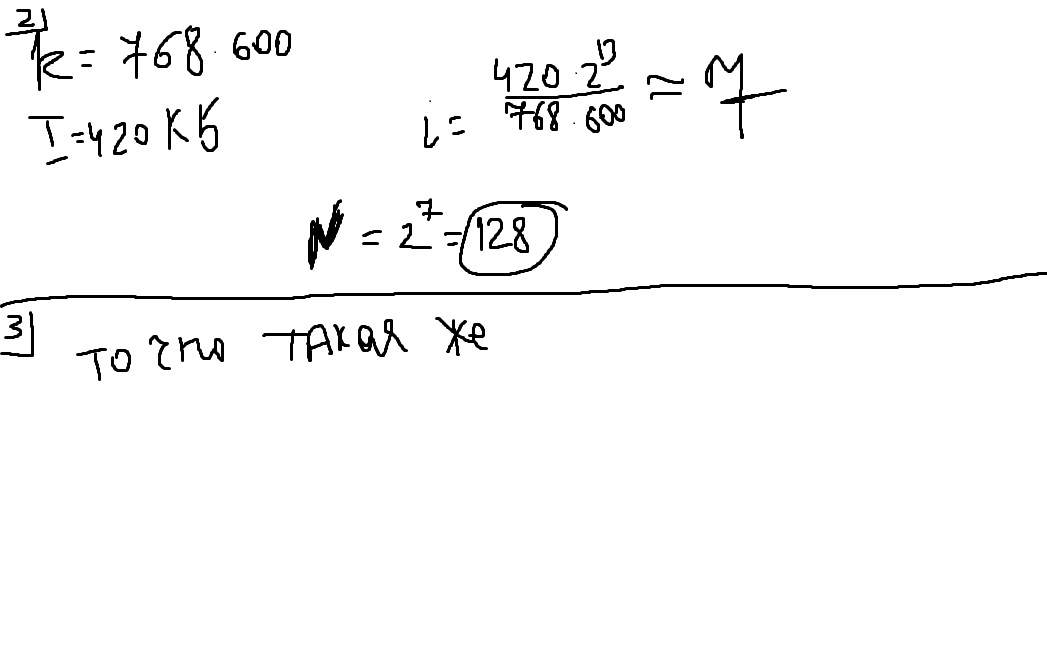 2)
k = 768 · 600
I = 420 КБ
i = 420 · 2^13 / 768 · 600 ≃ 7
N = 2^7 = 128
3)
точно такая же